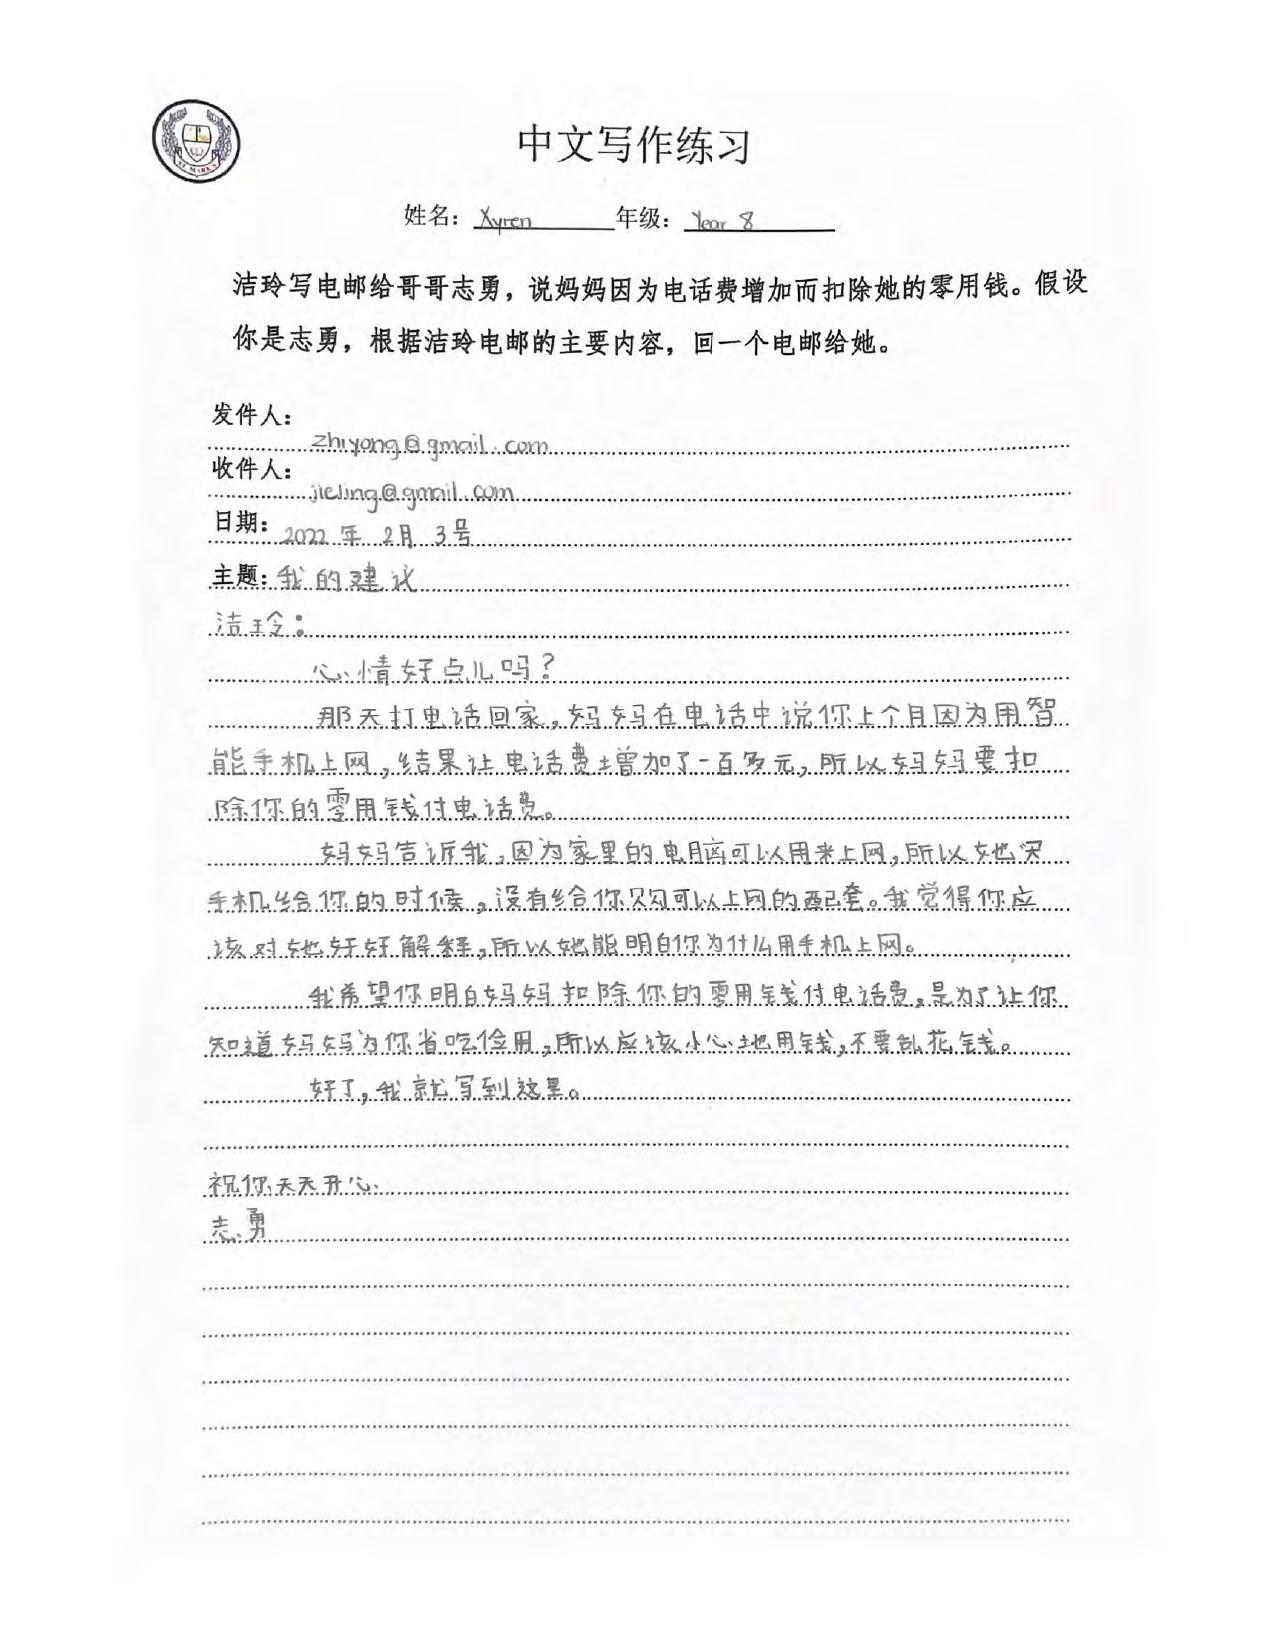 中文写作练习
姓名: Xyren 年级: Year 8
洁玲写电邮给哥哥志勇，说妈妈因为电话费增加而扣除她的零用钱。假设
你是志勇，根据洁玲电邮的主要内容，回一个电邮给她。
发件人:
zhiyong@gmail.com
收件人:
jieling@gmail.com
日期: 2022 年 2月 3号
主题: 我的建议
洁玲：
心情好点儿吗？
那天打电话回家，妈妈在电话中说你上个月因为用智
能手机上网，结果让电话费增加了一百多元，所以妈妈要扣
除你的零用钱付电话费。
妈妈告诉我，因为家里的电脑可以用来上网，所以她买
手机给你的时候，没有给你购可以上网的配套。我觉得你应
该对她好好解释，所以她能明白你为什么用手机上网。
我希望你明白妈妈扣除你的零用钱付电话费，是为了让你
知道妈妈为你省吃俭用，所以应该小心地用钱，不要乱花钱。
好了，我就写到这里。
祝你天天开心
志勇